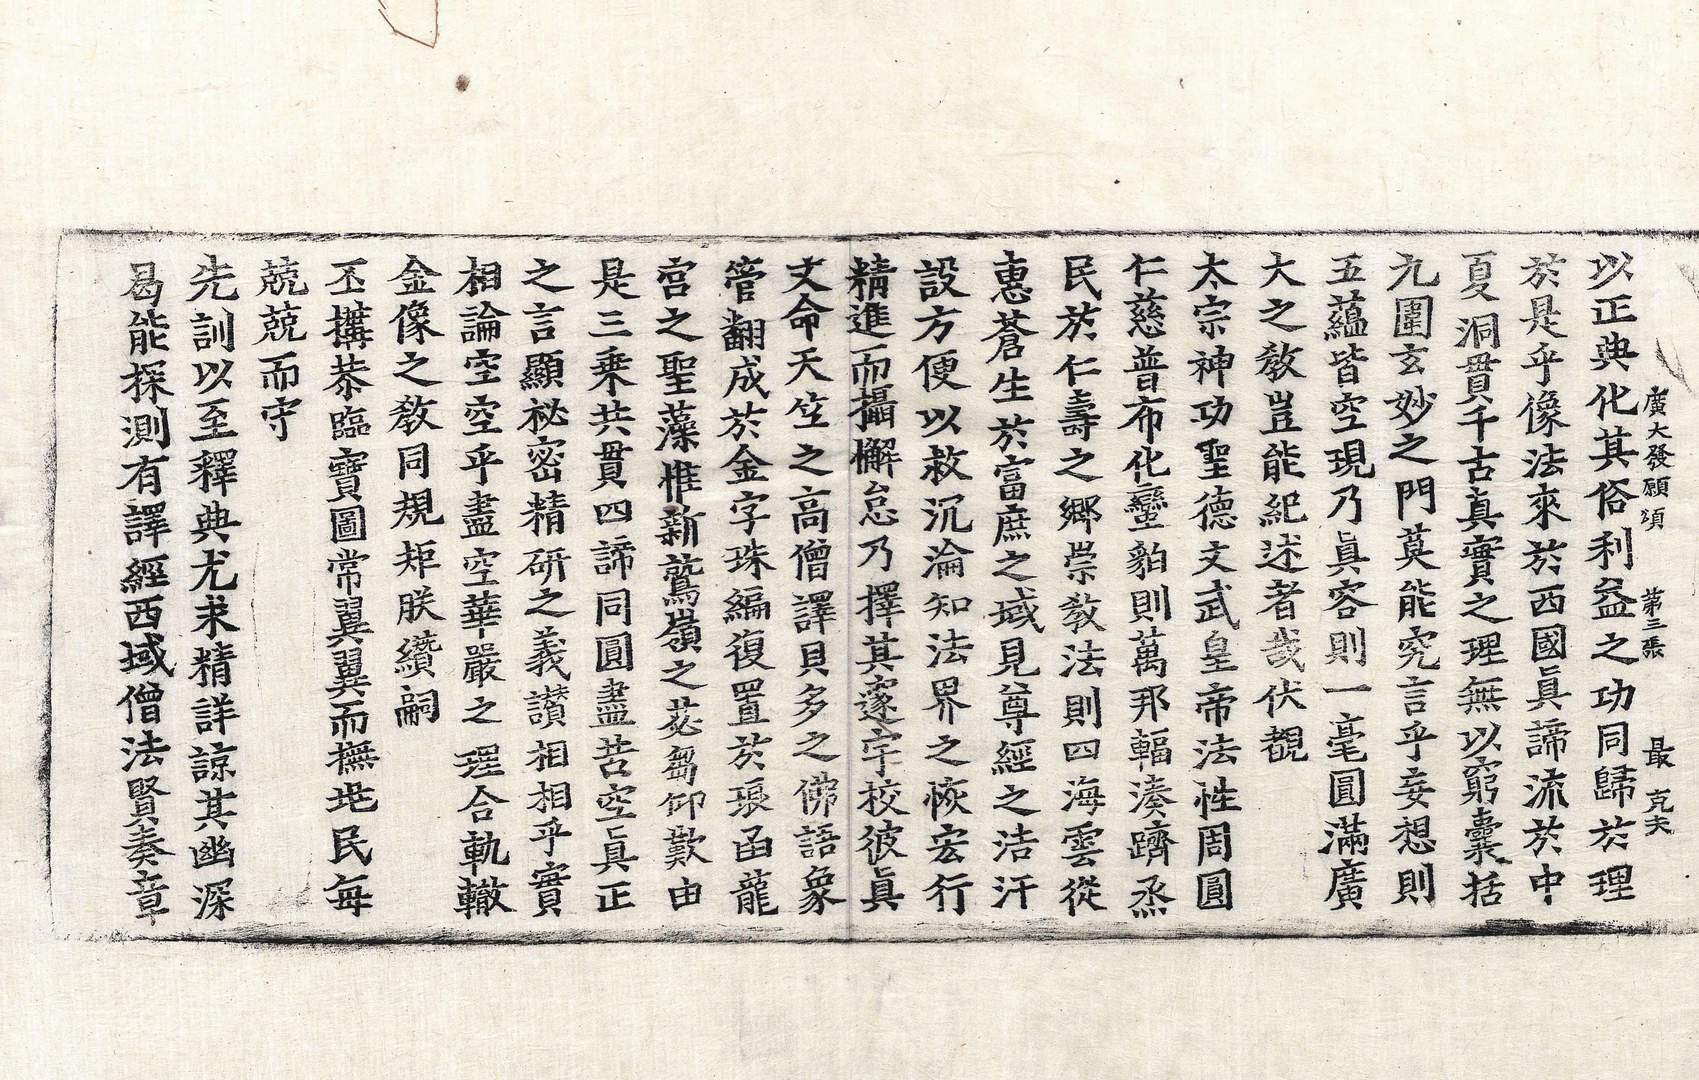 廣大發願頌 第三張 最 克夫
以正典化其俗利益之功同歸於理
於是乎像法來於西國眞諦流於中
夏洞貫千古真實之理無以窮囊括
九圍玄妙之門莫能究言乎妄想則
五蘊皆空現乃眞容則一毫圓滿廣
大之教豈能紀述者哉伏覩
太宗神功聖德文武皇帝法性周圓
仁慈普布化蠻貊則萬邦輻湊躋烝
民於仁壽之鄉崇教法則四海雲從
惠蒼生於富庶之域見尊經之浩汗
設方便以救沉淪知法界之恢宏行
精進而攝懈怠乃擇其邃宇校彼眞
文命天竺之高僧譯貝多之佛語象
管翻成於金字珠編復置於琅函龍
宮之聖藻惟新鷲嶺之苾蒭仰歎由
是三乘共貫四諦同圓盡苦空眞正
之言顯祕密精研之義讃相相乎實
相論空空乎盡空華嚴之理合軌轍
金像之教同規矩朕纘嗣
丕搆恭臨寶圖常翼翼而撫地民每
兢兢而守
先訓以至釋典尤求精詳諒其幽深
曷能探測有譯經西域僧法賢奏章